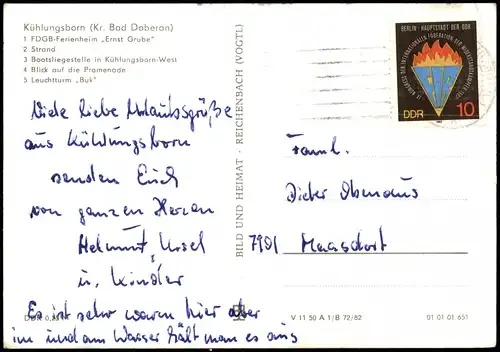 Kühlungsborn (Kr. Bad Doberan)
1 FDGB-Ferienheim „Ernst Grube"
2 Strand
3 Bootsliegestelle in Kühlungsborn-West
4 Blick auf die Promenade
5 Leuchtturm „Buk"
Viele liebe Urlaubsgrüße
aus Kühlungsborn
senden Euch
von ganzen Herzen
Helmut, Ursel
u. Kinder
Es ist sehr warm hier aber
im und am Wasser hält man es aus
DDR 0,25
BILD UND HEIMAT · REICHENBACH (VOGTL)
BERLIN · HAUPTSTADT DER DDR
IX. KONGRESS DER INTERNATIONALEN FÖDERATION DER WIDERSTANDSKÄMPFER
DDR 10
Faml.
Dieter Obenaus
7901 Maasdorf
V 11 50 A 1/B 72/82
01 01 01 651